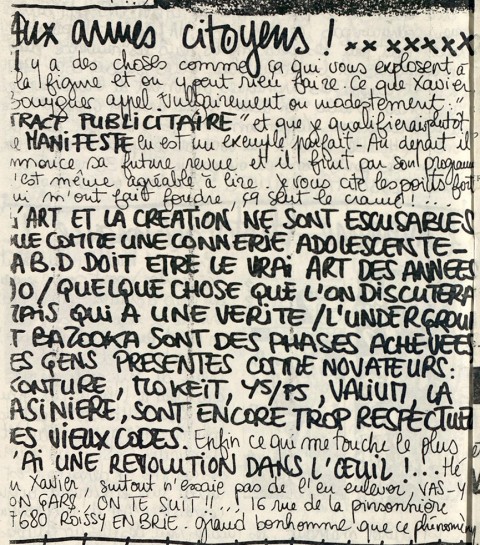 Aux armes citoyens ! xx xxxxx
l y a des choses comme ça qui vous explosent à
la figure et où y peut rien faire. Ce que Xavier
Bouygues appel vulbairement ou modestement : "
TRACT PUBLICITAIRE" et que je qualifierai plutôt
e MANIFESTE en est un exemple parfait - Au départ il
nnonce sa future revue et il finit par son programm
'est même agréable à lire. Je vous cite les points fort
ui m'ont fait foudre, ça sent le cramé !...
L'ART ET LA CREATION NE SONT ESCUSABLES
QUE COMME UNE CONNERIE ADOLESCENTE -
A B.D DOIT ETRE LE VRAI ART DES ANNEES
0/ QUELQUE CHOSE QUE L'ON DISCUTERA
MAIS QUI A UNE VERITE / L'UNDERGROU
T BAZOOKA SONT DES PHASES ACHEVEES
ES GENS PRESENTES COMME NOVATEURS :
CONTURE, MOKEIT, Y5/P5, VALIUM, LA
ASINIERE, SONT ENCORE TROP RESPECTUE
ES VIEUX CODES. Enfin ce qui me touche le plus
'AI UNE REVOLUTION DANS L'ŒUIL !... He
u Xavier, surtout n'essaie pas de l'en enlever, VAS-Y
ON GARS, ON TE SUIT !!... 16 rue de la pinsonnière
7680 ROISSY EN BRIE. grand bonhomme que ce phenomen